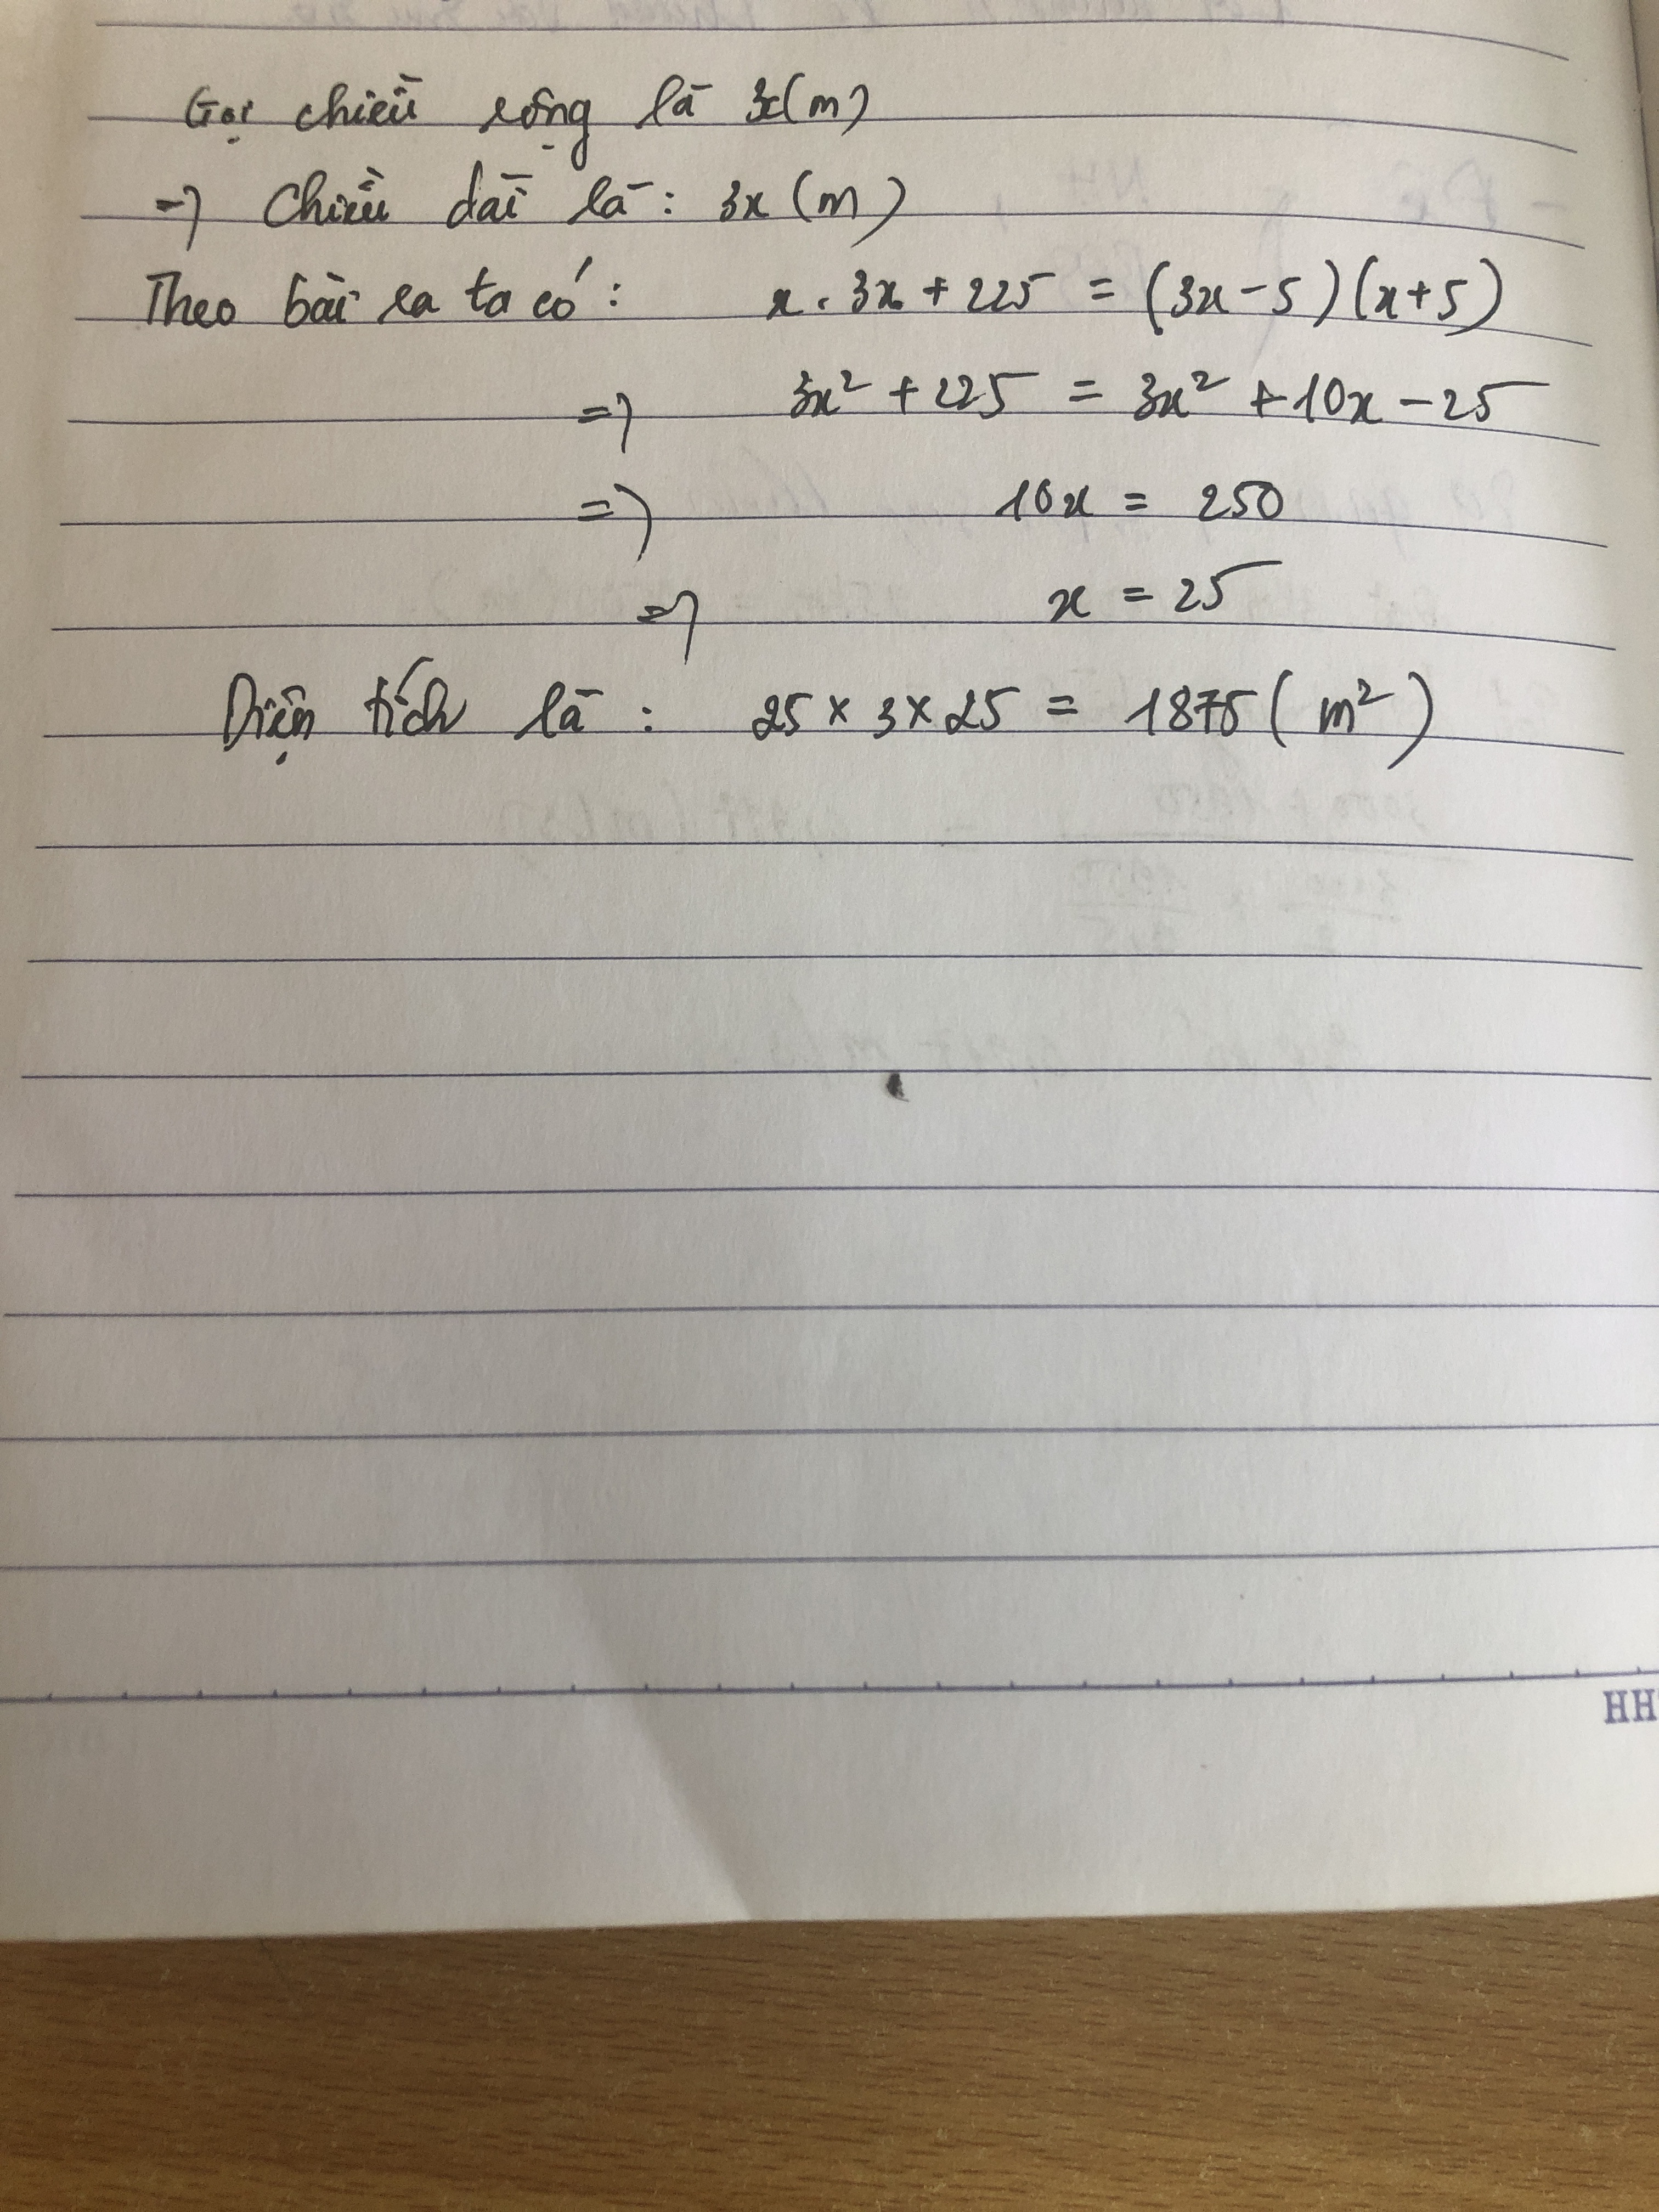 Gọi chiều rộng là x(m)
=> Chiều dài là: 3x (m)
Theo bài ra ta có: x . 3x + 225 = (3x - 5)(x + 5)
=> 3x² + 225 = 3x² + 10x - 25
=> 10x = 250
=> x = 25
Diện tích là: 25 x 3 x 25 = 1875 (m²)
HH